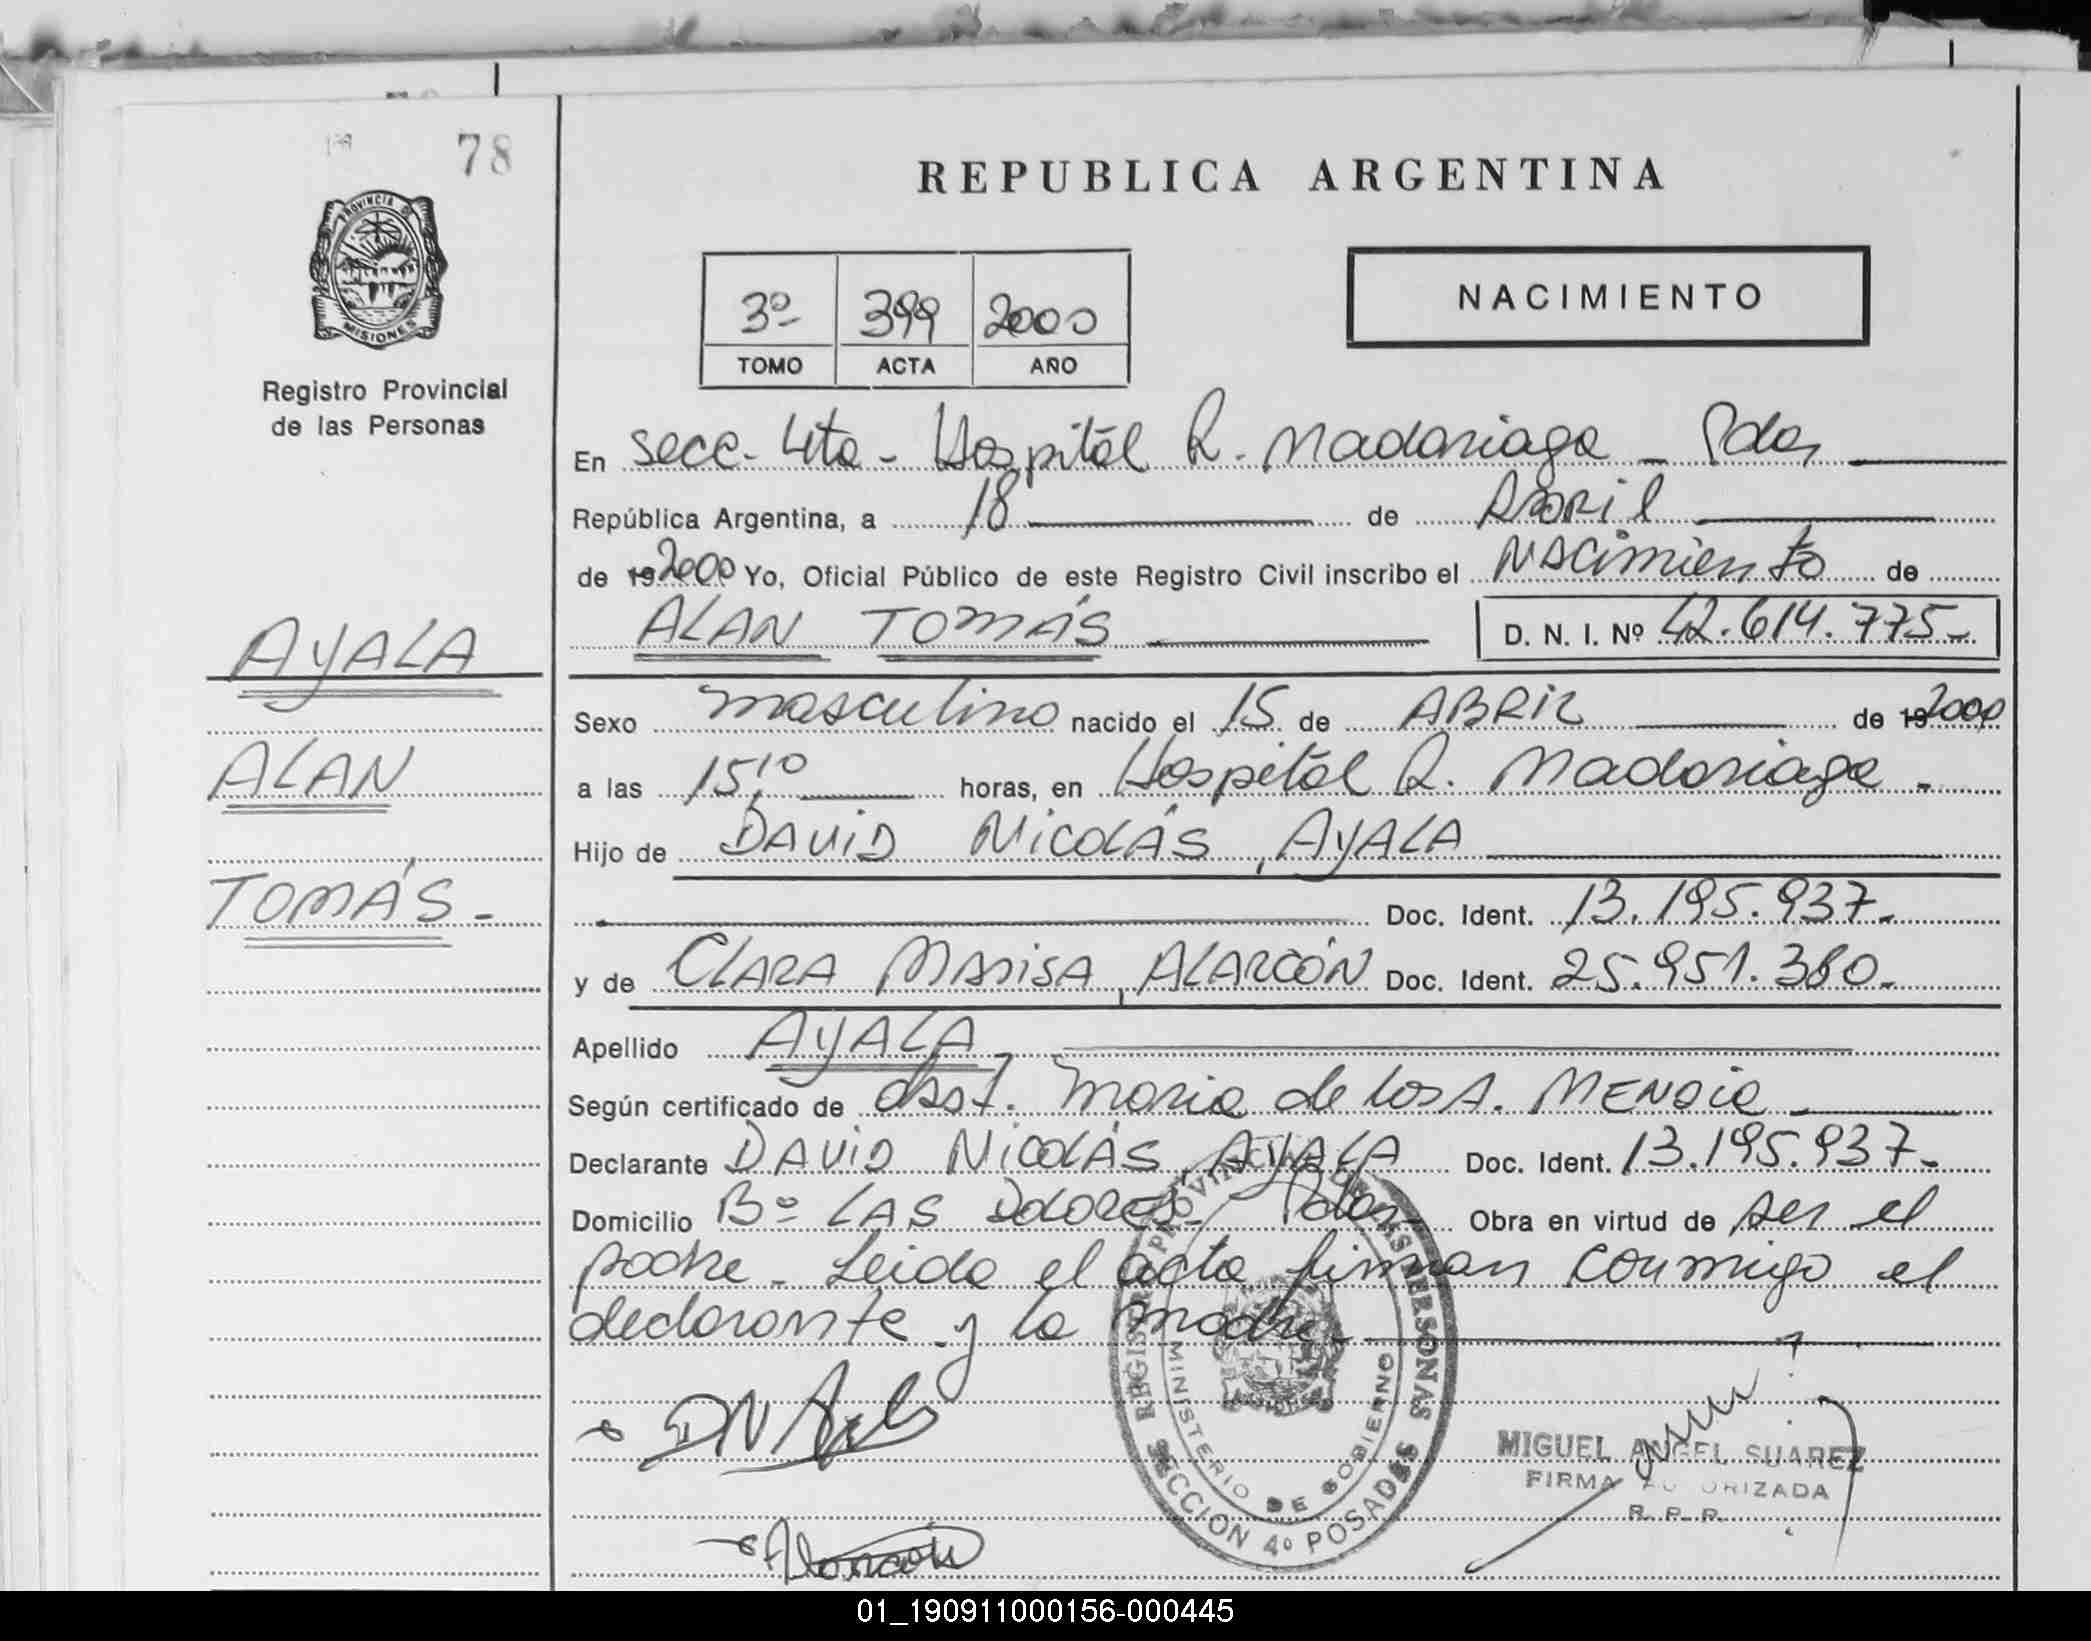 78
PROVINCIA DE
MISIONES
Registro Provincial
de las Personas
AYALA
ALAN
TOMÁS -
REPUBLICA ARGENTINA
3º- 399 2000
TOMO ACTA AÑO
NACIMIENTO
En secc. 4ta - Hospital R. Madariaga - Pdas
República Argentina, a 18 de Abril
de 19 2000 Yo, Oficial Público de este Registro Civil inscribo el Nacimiento de
ALAN TOMÁS D. N. I. Nº 42.614.775-
Sexo masculino nacido el 15 de ABRIL de 19 2000
a las 15,10 horas, en Hospital R. Madariaga -
Hijo de DAVID NICOLÁS, AYALA
Doc. Ident. 13.195.937-
y de CLARA MARISA, ALARCÓN Doc. Ident. 25.951.380-
Apellido AYALA
Según certificado de obst. Maria de los A. MENDIE
Declarante DAVID NICOLÁS, AYALA Doc. Ident. 13.195.937-
Domicilio Bº LAS DOLORES - Pdas - Obra en virtud de ser el
padre - Leida el acta firman conmigo el
declarante y la madre -
DN Ayala
Alarcón
REGISTRO PROVINCIAL DE LAS PERSONAS
MINISTERIO DE GOBIERNO
SECCION 4º POSADAS
MIGUEL ANGEL SUAREZ
FIRMA AUTORIZADA
R. P. P.
01_190911000156-000445